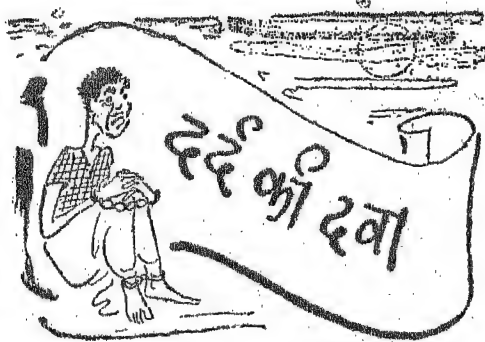 दर्द की दवा